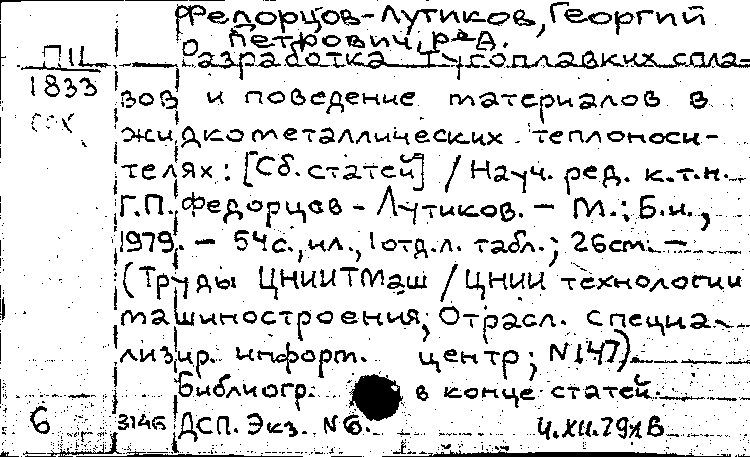 Федорцов-Лутиков, Георгий
Петрович, ред.
П11 Разработка тугоплавких спла-
1833 вов и поведение материалов в
жидкометаллических теплоноси-
телях: [Сб. статей] / Науч. ред. к.т.н.
Г.П. Федорцов - Лутиков. - М.: Б.и.,
1979. - 54с., ил., 1 отд.л. табл.; 26см. -
(Труды ЦНИИТМаш / ЦНИИ технологии
машиностроения, Отрасл. специа-
лизир. информ. центр; №147).
Библиогр. в конце статей.
6 3146 ДСП. Экз. №6. 4.XII.79г В